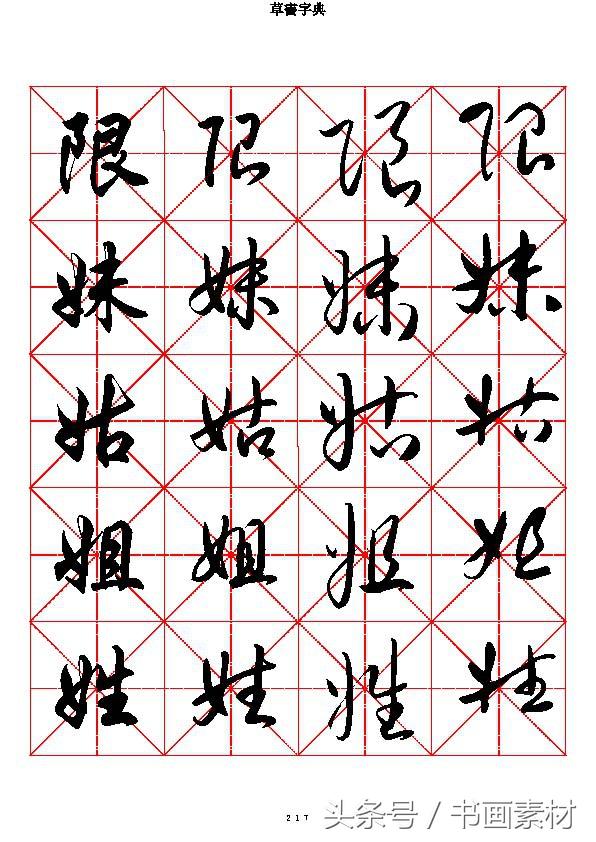 草書字典
限 限 限 限
妹 妹 妹 妹
姑 姑 姑 姑
姐 姐 姐 姐
姓 姓 姓 姓
217
头条号 / 书画素材